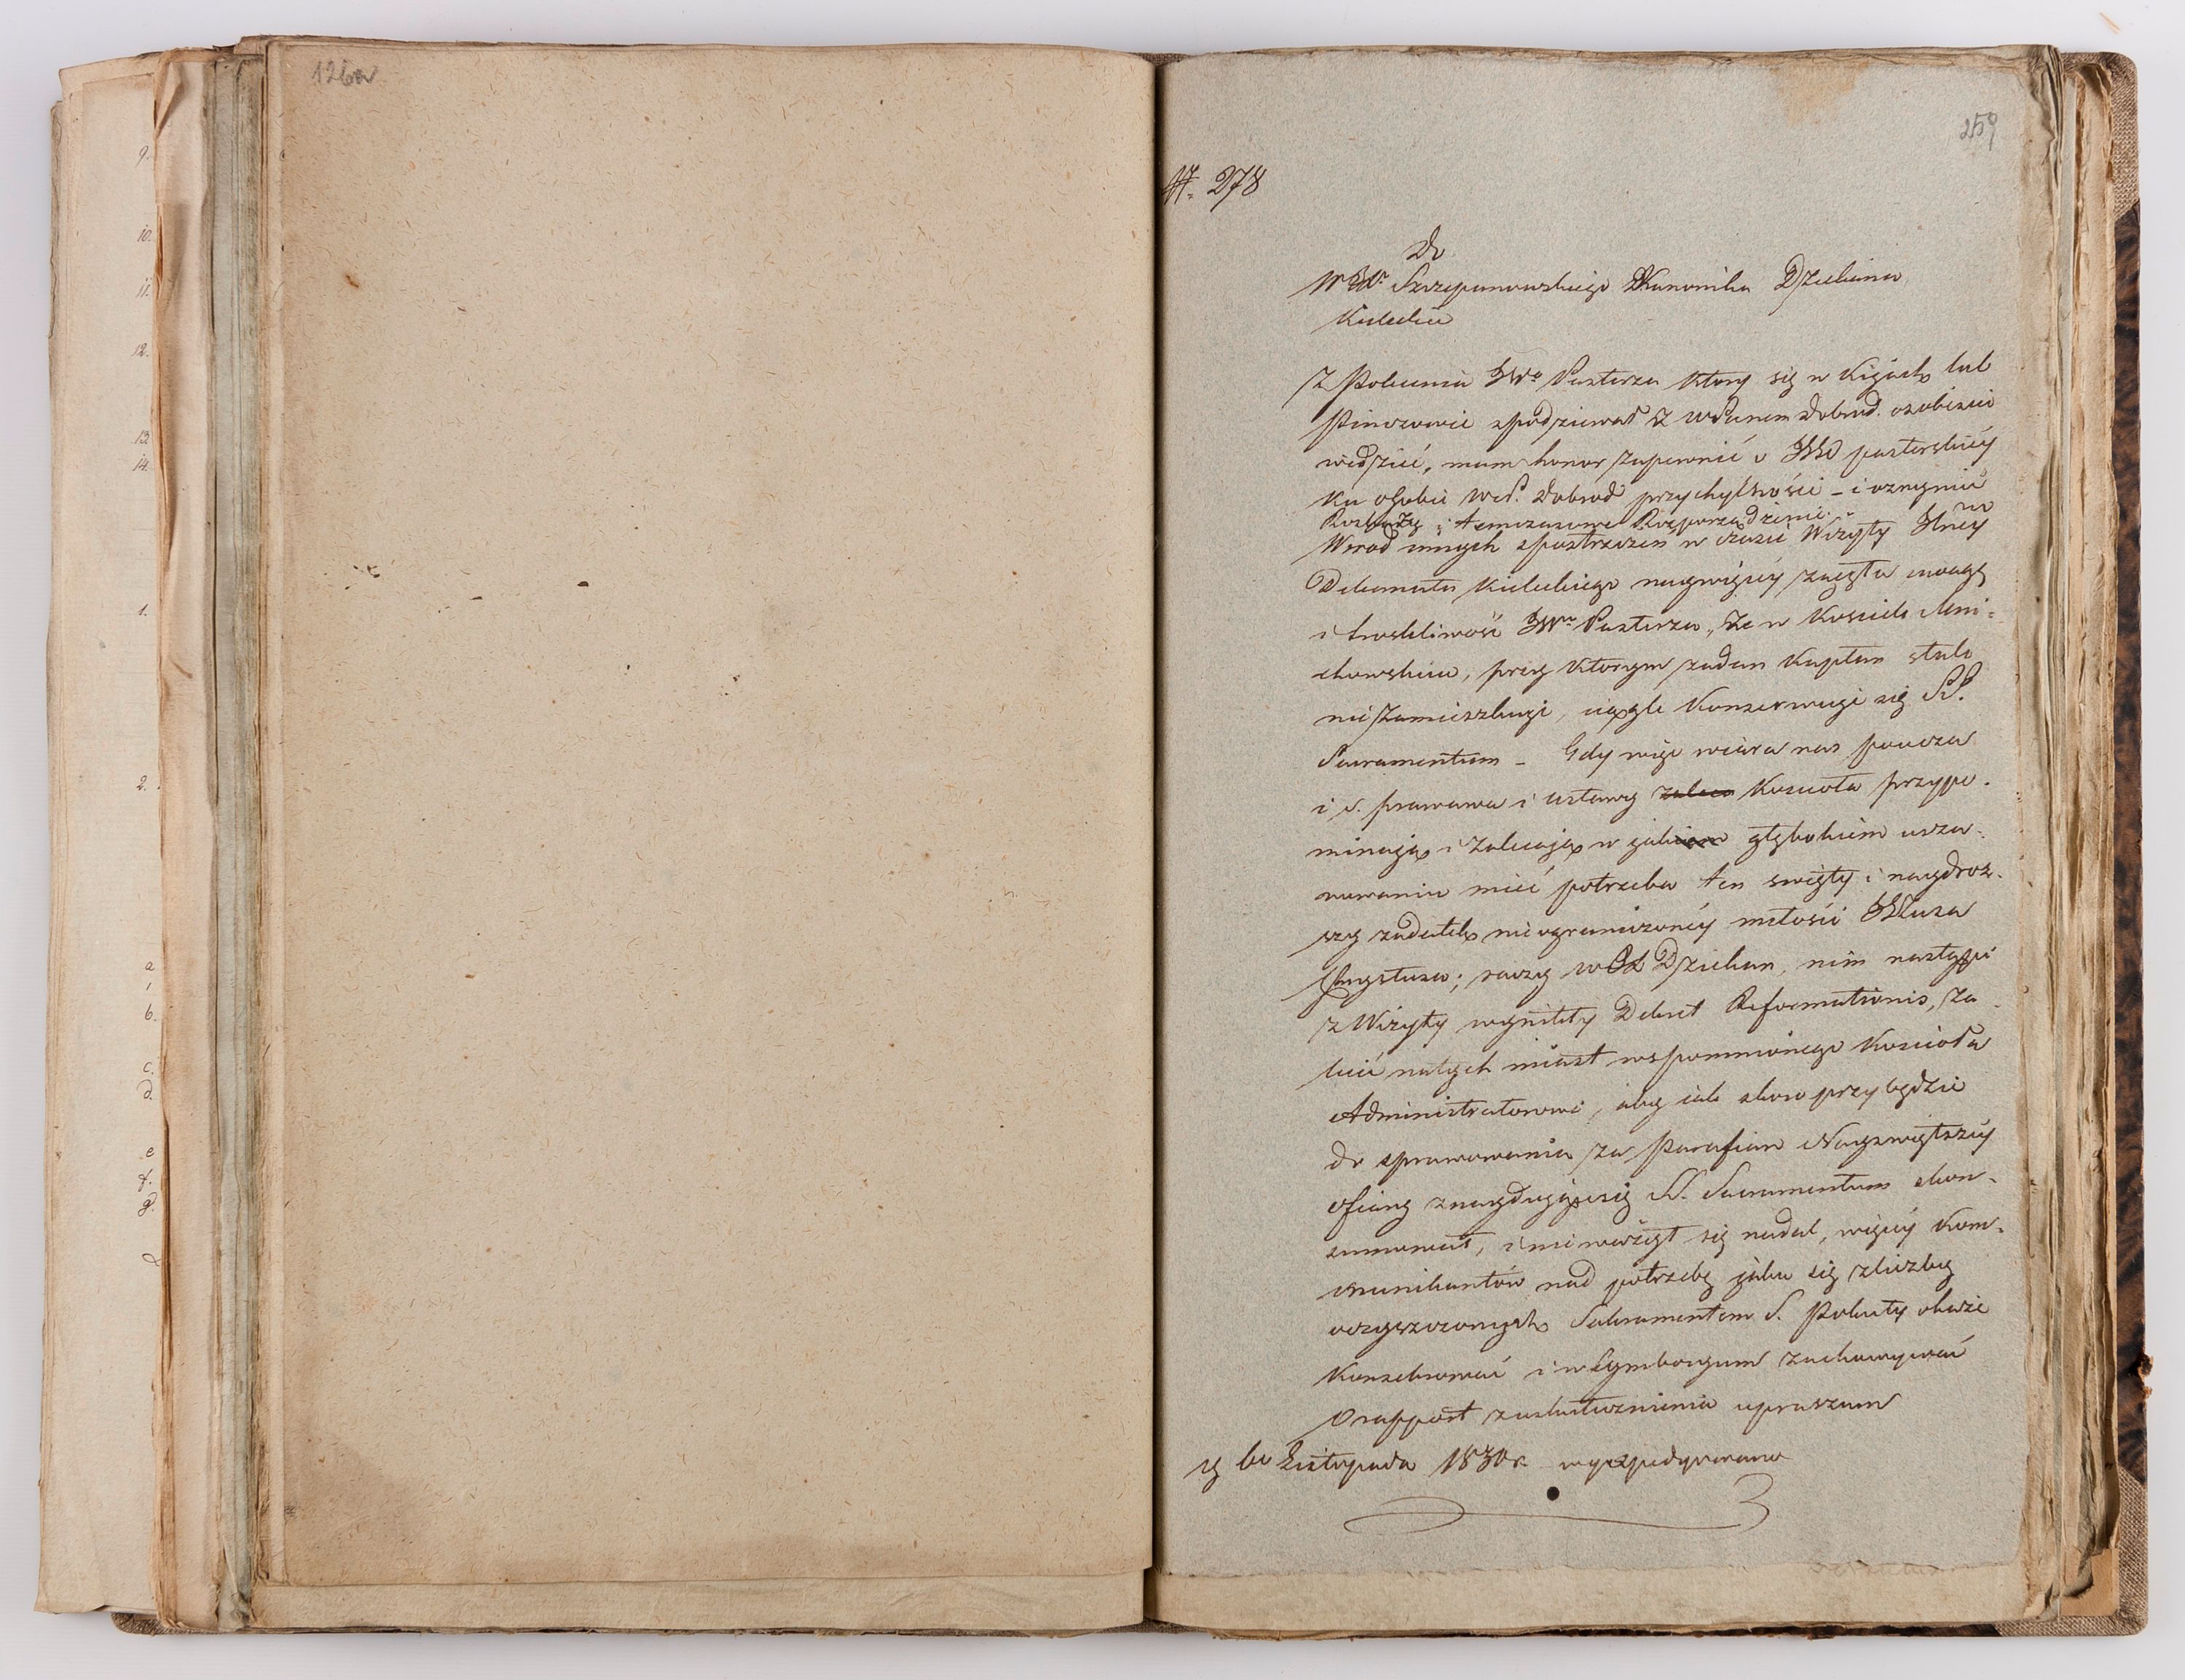 126a
9.
10.
11.
12.
13.
14.
1.
2.
a
b.
c.
d.
e
f.
g.
259
N. 278
Do
WJW. Szczepanowskiego Kanonika Dziekana
Kieleckie
Z Polecenia JWo Pasterza który się w Kijach lub
Pinczowie spodziewał z WPanem Dobrod. osobiscie
widzieć, mam honor zapewnić o JWo pasterskiéy
ku osobie WP. Dobrod przychylności - i oznaymić
tymczasowe Rozporządzenie.
Wsrod innych spostrzezeń w czasie Wizyty
Dekanatu Kieleckiego naywięcéy zaięła uwagę
i troskliwość JWo Pasterza, że w Kosciele Mni-
chowskim, przy ktorym żaden Kapłan stale
nie zamieszkuje, ciągle konserwuje się SS.
Sacramentum - Gdy więc wiara nas poucza
i s. prawa i ustawy Kosciola przypo-
minają i zalecają w jakiem głębokiem usza-
nowaniu mieć potrzeba ten swięty i naydroż-
szy zadatek nieograniczonéy miłości JZusa
Chrystusa; raczy Dziekan, nim nastąpi
z Wizyty wynikły Dekret Reformationis, za
lecić natychmiast wspomnionego Kościoła
Administratorowi, aby iak skoro przybędzie
do sprawowania za Parafian Nayswiętszéy
ofiary znayduiące się SS. Sacramentum skon-
sumował, i nie ważył się nadal, więcéy Kom-
munikantów nad potrzebę jaka się z liczby
oczyszczonych Sakramentem S. Pokuty okaże
Konsekrować i w Cymboryum zachowywać
O rapport zaskutecznienia upraszam
Listopada 1830 r. wyexpedyowano